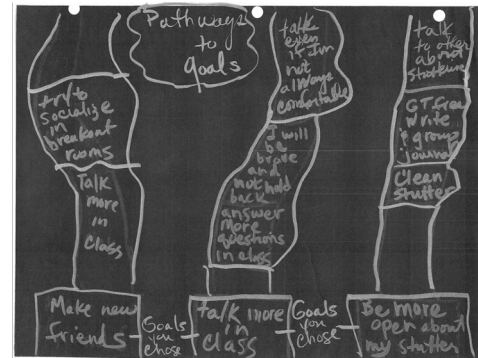 Pathways
to
goals
try to
socialize
in
breakout
rooms
Talk
more
in
Class
Make new
friends
Goals
you
chose
talk
even
if Im
not
always
comfortable
I will
be
brave
and
not hold
back
answer
more
questions
in class
talk more
in
Class
Goals
you
chose
talk
to other
about
write
& group
journal
Clean
stutter
Be more
open about
my stutter